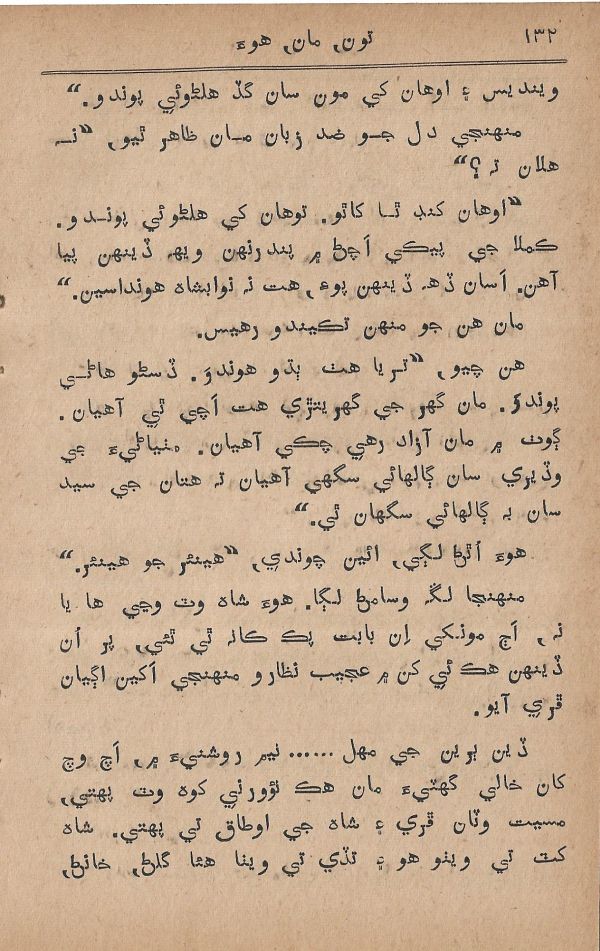 ۱۳۲
تون, مان, هوءَ
وينديس ۽ اوهان کي مون سان گڏ هلڻوئي پوندو.“
منهنجي دل جو ضد زبان مان ظاهر ٿيو, ”نه
هلان ته؟“
”اوهان ڪنڊ ٿا کاڻو. توهان کي هلڻوئي پوندو.
ڪملا جي پيڪي اَچڻ ۾ پندرنهن ويهه ڏينهن پيا
آهن. اَسان ڏهه ڏينهن پوءِ, هت نه نوابشاهه هونداسين.“
مان هن جو منهن تڪيندو رهيس.
هن چيو, ”تريا هٺ ٻڌو هوندوَ. ڏسڻو هاڻي
پوندوَ. مان گهر جي گهريتڙي هت اَچي ٿي آهيان.
ڳوٺ ۾ مان آزاد رهي چڪي آهيان. مٺياڻيءَ جي
وڏيري سان ڳالهائي سگهي آهيان ته هتان جي سيد
سان به ڳالهائي سگهان ٿي.“
هوءَ اُٿڻ لڳي, ائين چوندي, ”هينئر جو هينئر.“
منهنجا لڱ وسامڻ لڳا. هوءَ شاهه وٽ وڃي ها يا
نه, اَڄ مونکي اِن بابت پڪ ڪانه ٿي ٿئي, پر اُن
ڏينهن هڪ ئي کن ۾ عجيب نظارو منهنجي اَکين اڳيان
ڦري آيو.
ڏيئن ٻرين جي مهل...... نيم روشنيءَ ۾, اَڄ وچ
کان خالي گهٽيءَ مان هڪ نؤورني کوهه وٽ پهتي,
مسيت وٽان ڦري ۽ شاهه جي اوطاق تي پهتي. شاهه
کٽ تي ويٺو هو ۽ تڏي تي ويٺا هئا گلڻ, خاڻڻ,